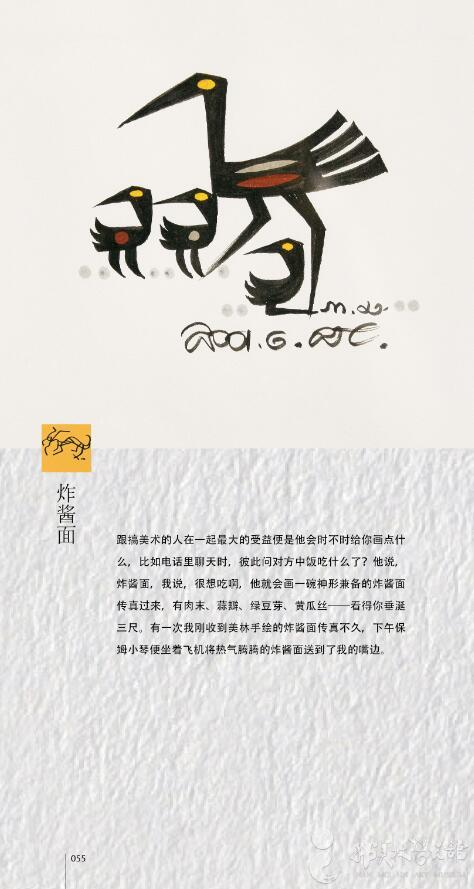 2001.6.
炸酱面
跟搞美术的人在一起最大的受益便是他会时不时给你画点什
么，比如电话里聊天时，彼此问对方中饭吃什么了？他说，
炸酱面，我说，很想吃啊，他就会画一碗神形兼备的炸酱面
传真过来，有肉末、蒜瓣、绿豆芽、黄瓜丝——看得你垂涎
三尺。有一次我刚收到美林手绘的炸酱面传真不久，下午保
姆小琴便坐着飞机将热气腾腾的炸酱面送到了我的嘴边。
055